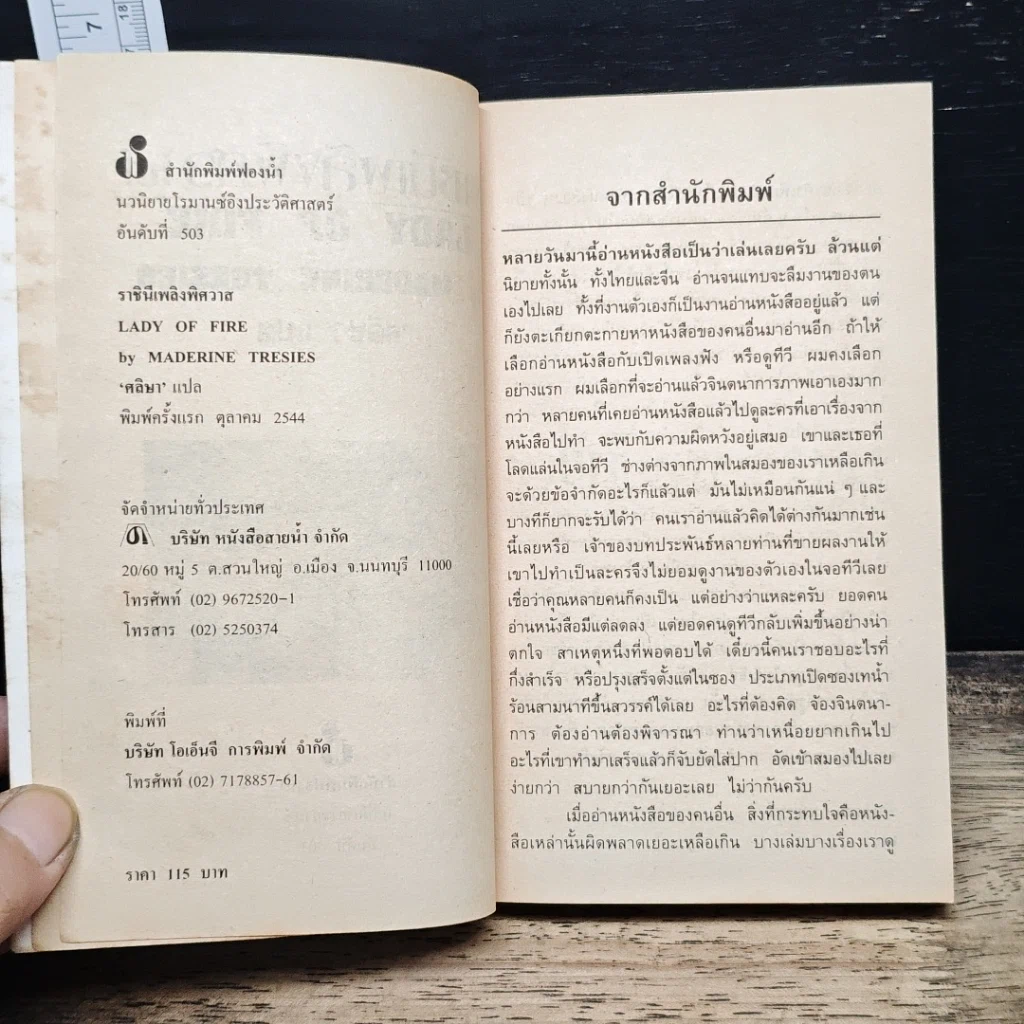 7
18
สำนักพิมพ์ฟองน้ำ
นวนิยายโรมานซ์อิงประวัติศาสตร์
อันดับที่ 503
ราชินีเพลิงพิศวาส
LADY OF FIRE
by MADERINE TRESIES
‘ศลิษา’ แปล
พิมพ์ครั้งแรก ตุลาคม 2544
จัดจำหน่ายทั่วประเทศ
บริษัท หนังสือสายน้ำ จำกัด
20/60 หมู่ 5 ต.สวนใหญ่ อ.เมือง จ.นนทบุรี 11000
โทรศัพท์ (02) 9672520-1
โทรสาร (02) 5250374
พิมพ์ที่
บริษัท โอเอ็นจี การพิมพ์ จำกัด
โทรศัพท์ (02) 7178857-61
ราคา 115 บาท
จากสำนักพิมพ์
หลายวันมานี้อ่านหนังสือเป็นว่าเล่นเลยครับ ล้วนแต่
นิยายทั้งนั้น ทั้งไทยและจีน อ่านจนแทบจะลืมงานของตน
เองไปเลย ทั้งที่งานตัวเองก็เป็นงานอ่านหนังสืออยู่แล้ว แต่
ก็ยังตะเกียกตะกายหาหนังสือของคนอื่นมาอ่านอีก ถ้าให้
เลือกอ่านหนังสือกับเปิดเพลงฟัง หรือดูทีวี ผมคงเลือก
อย่างแรก ผมเลือกที่จะอ่านแล้วจินตนาการภาพเอาเองมาก
กว่า หลายคนที่เคยอ่านหนังสือแล้วไปดูละครที่เอาเรื่องจาก
หนังสือไปทำ จะพบกับความผิดหวังอยู่เสมอ เขาและเธอที่
โลดแล่นในจอทีวี ช่างต่างจากภาพในสมองของเราเหลือเกิน
จะด้วยข้อจำกัดอะไรก็แล้วแต่ มันไม่เหมือนกันแน่ ๆ และ
บางทีก็ยากจะรับได้ว่า คนเราอ่านแล้วคิดได้ต่างกันมากเช่น
นี้เลยหรือ เจ้าของบทประพันธ์หลายท่านที่ขายผลงานให้
เขาไปทำเป็นละครจึงไม่ยอมดูงานของตัวเองในจอทีวีเลย
เชื่อว่าคุณหลายคนก็คงเป็น แต่อย่างว่าแหละครับ ยอดคน
อ่านหนังสือมีแต่ลดลง แต่ยอดคนดูทีวีกลับเพิ่มขึ้นอย่างน่า
ตกใจ สาเหตุหนึ่งที่พอตอบได้ เดี๋ยวนี้คนเราชอบอะไรที่
กึ่งสำเร็จ หรือปรุงเสร็จตั้งแต่ในซอง ประเภทเปิดซองเทน้ำ
ร้อนสามนาทีขึ้นสวรรค์ได้เลย อะไรที่ต้องคิด จ้องจินตนา-
การ ต้องอ่านต้องพิจารณา ท่านว่าเหนื่อยยากเกินไป
อะไรที่เขาทำมาเสร็จแล้วก็จับยัดใส่ปาก อัดเข้าสมองไปเลย
ง่ายกว่า สบายกว่ากันเยอะเลย ไม่ว่ากันครับ
เมื่ออ่านหนังสือของคนอื่น สิ่งที่กระทบใจคือหนัง-
สือเหล่านั้นผิดพลาดเยอะเหลือเกิน บางเล่มบางเรื่องเราดู